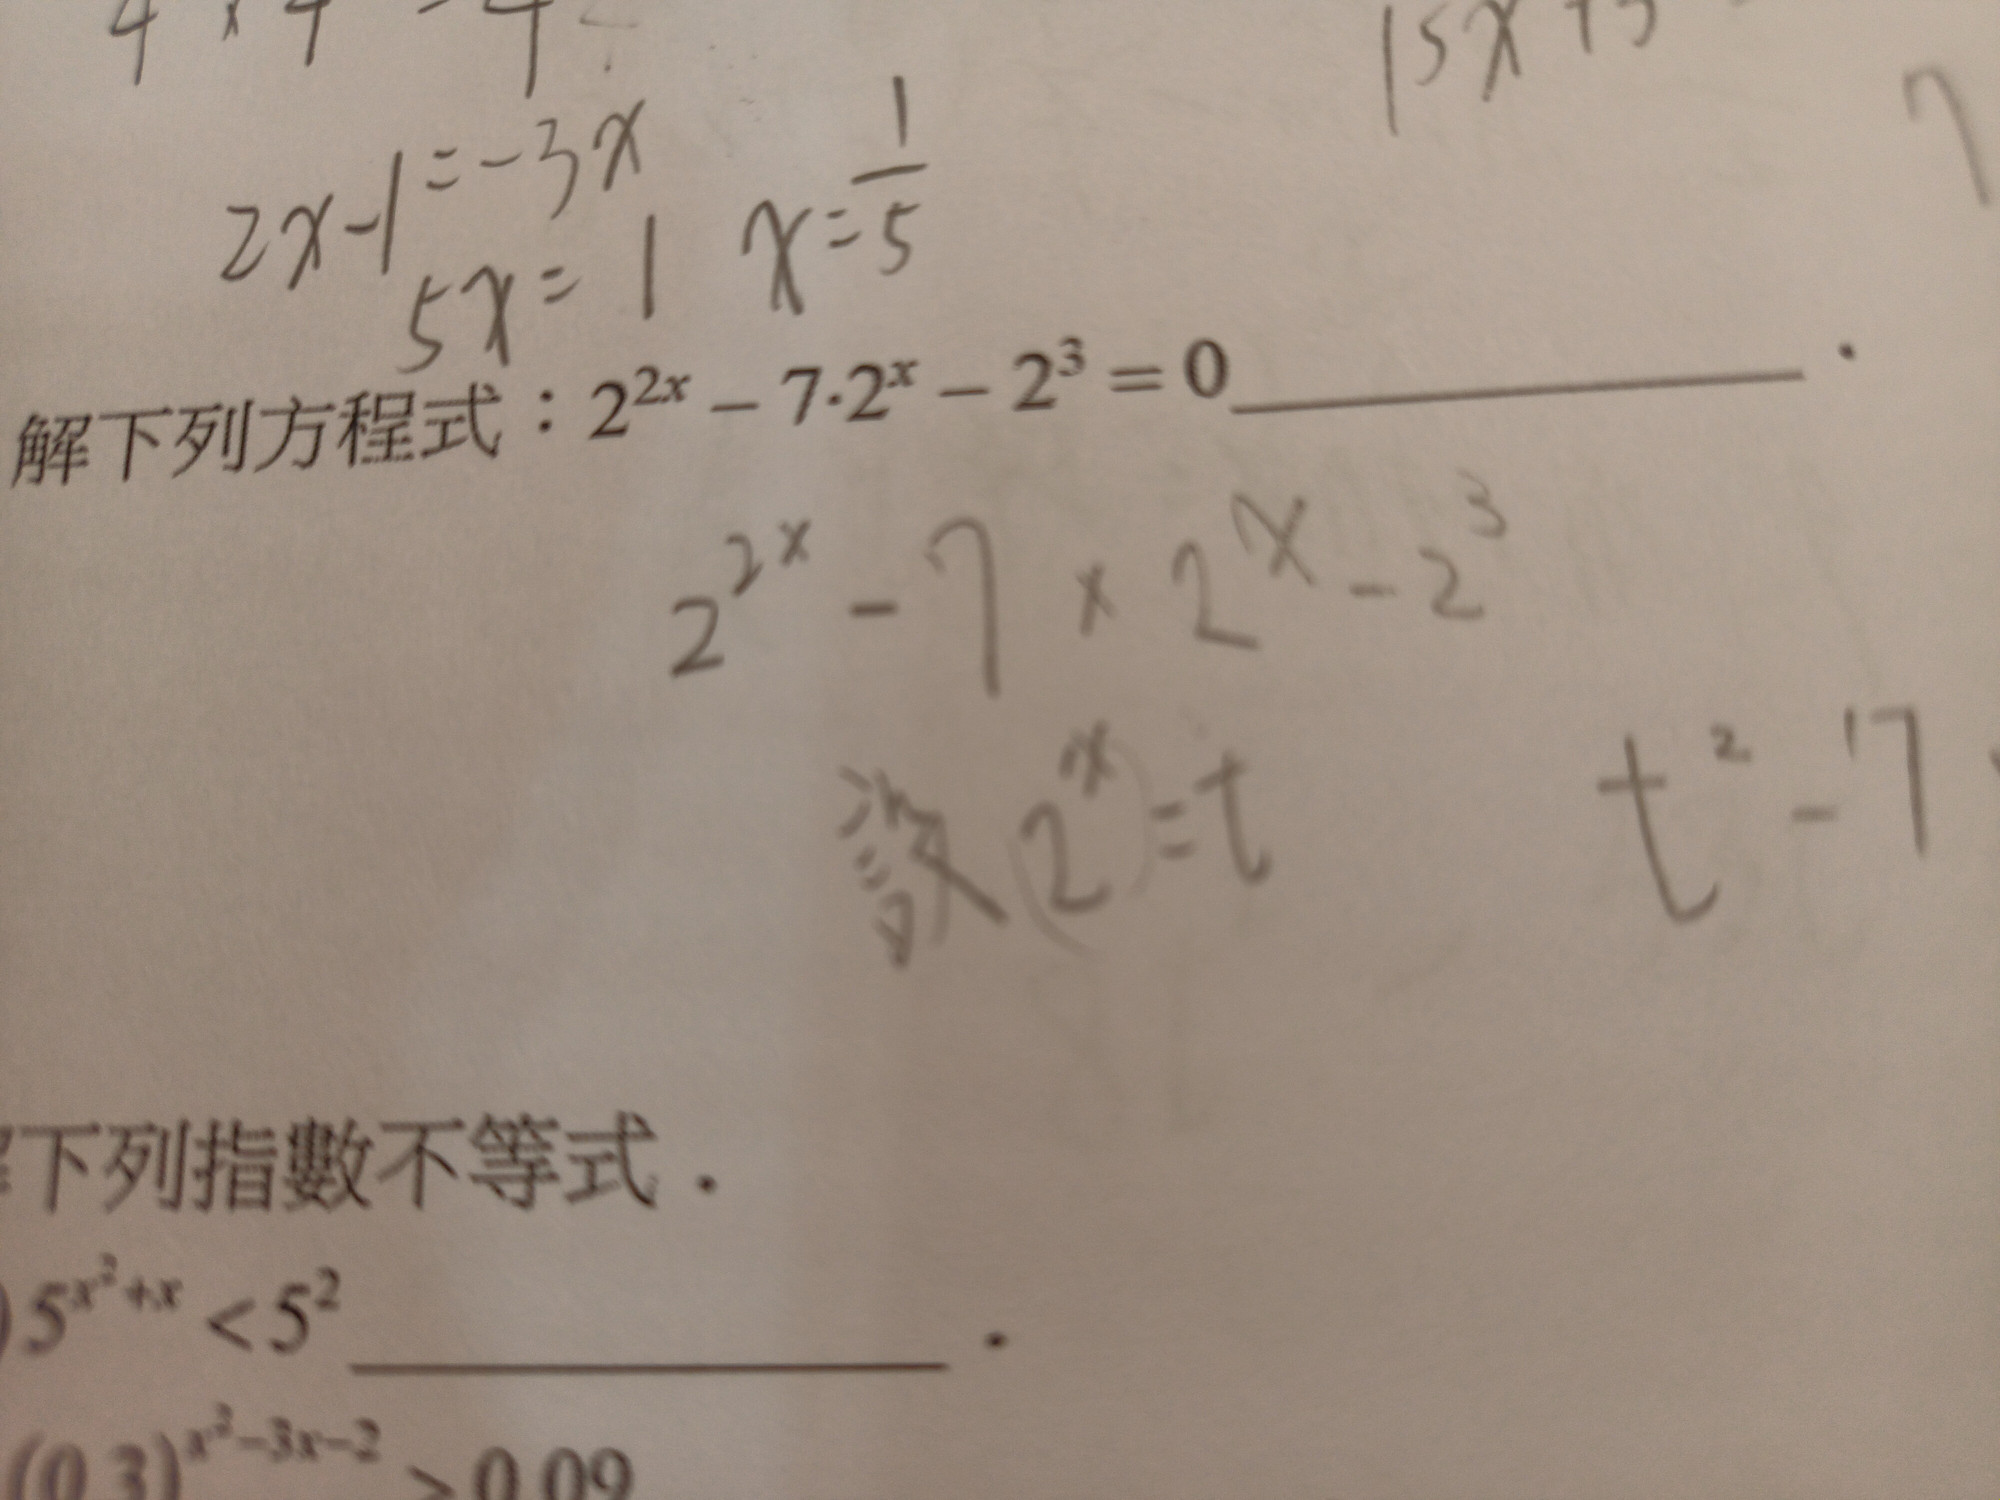 15x+5
2x-1=-3x
5x=1 x=1/5
解下列方程式：2^{2x} − 7·2^x − 2^3 = 0__________．
2^{2x} - 7 × 2^x - 2^3
設 2^x = t t^2 - 7
下列指數不等式．
)5^{x^2+x} < 5^2__________．
(0.3)^{x^2−3x−2} > 0.09